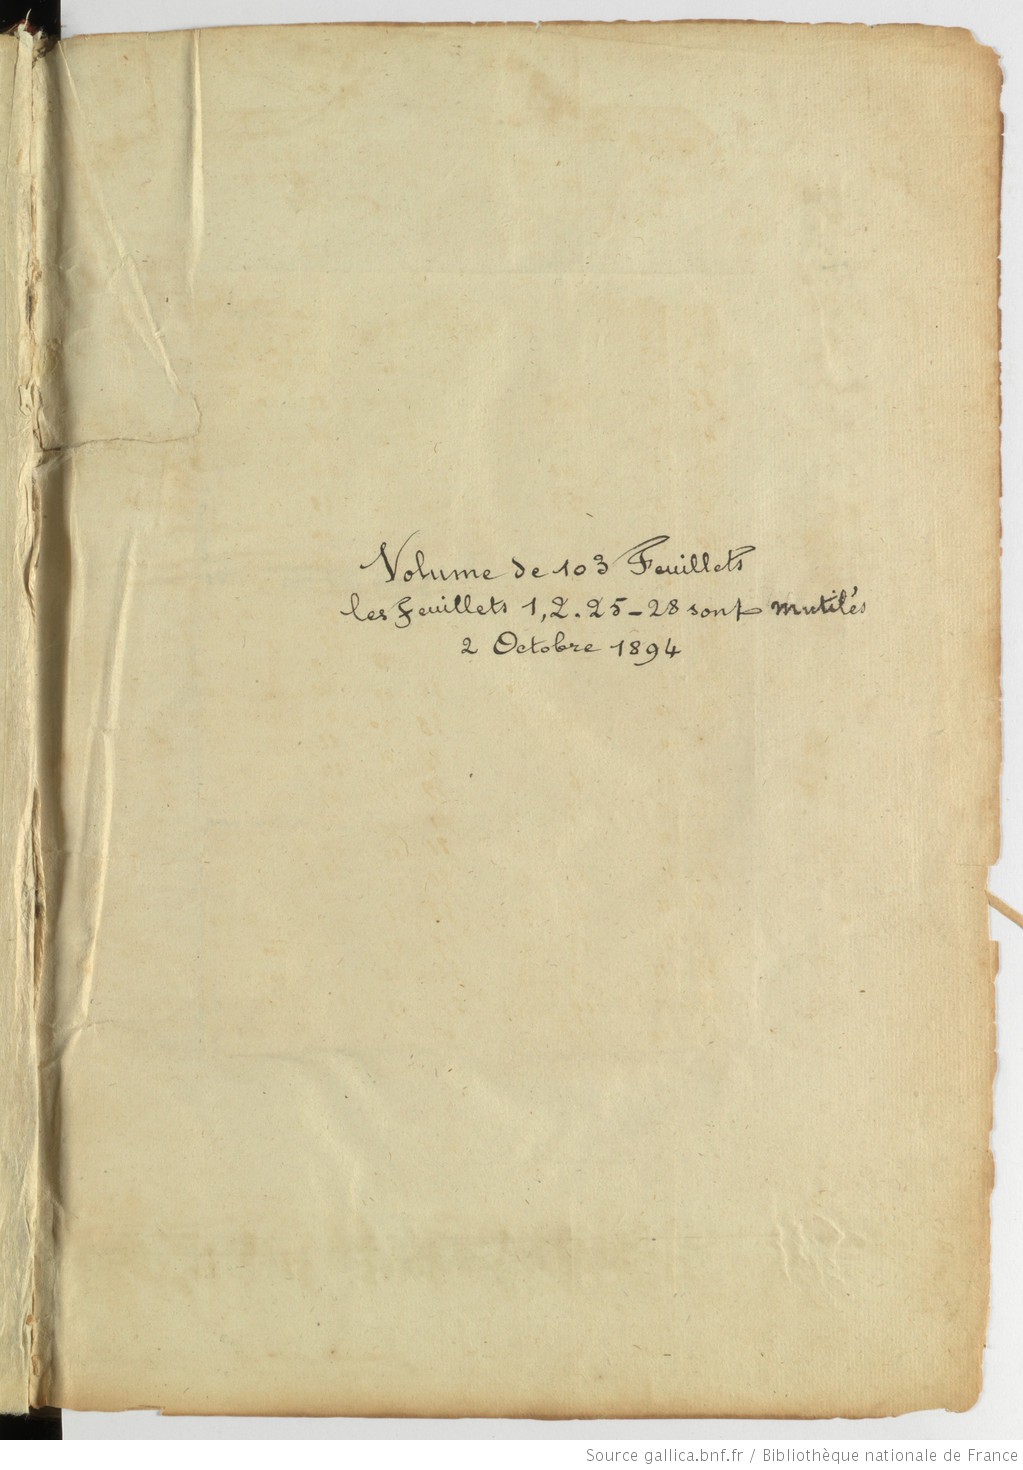 Volume de 103 Feuillets
les feuillets 1, 2. 25-28 sont mutilés
2 Octobre 1894
Source gallica.bnf.fr / Bibliothèque nationale de France